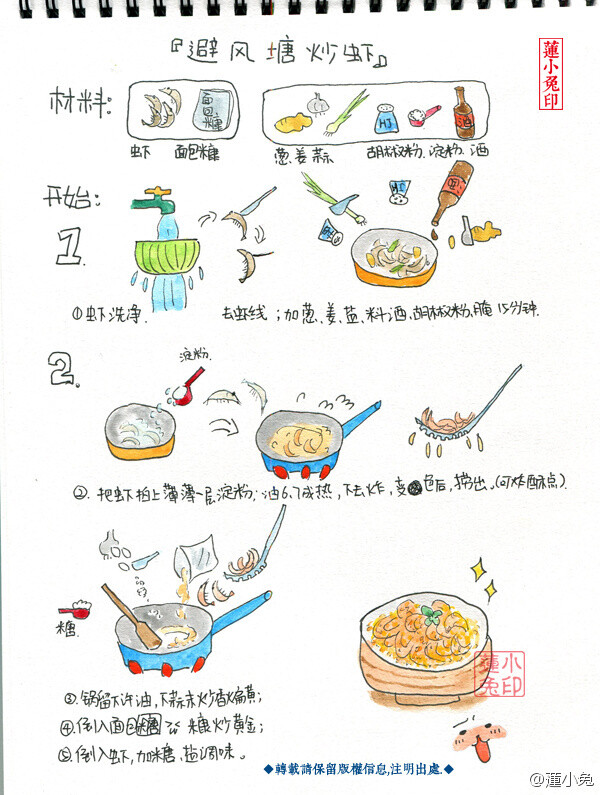 『避风塘炒虾』
蓮小兔印
材料:
面包糠
HJ
酒
虾 面包糠
葱姜蒜 胡椒粉.淀粉.酒
开始:
1.
HJ
酒
①虾洗净.
去虾线;加葱、姜、盐、料酒、胡椒粉,腌15分钟.
2.
淀粉.
②.把虾拍上薄薄一层淀粉;油6、7成热,下去炸,变色后,捞出。(可炸酥点)
糖
③.锅留下许油,下蒜末炒香煸黄;
④.倒入面包糠 糠炒黄金;
⑤.倒入虾,加糖、盐调味。
蓮小兔印
◆轉載請保留版權信息,注明出處.◆
@蓮小兔